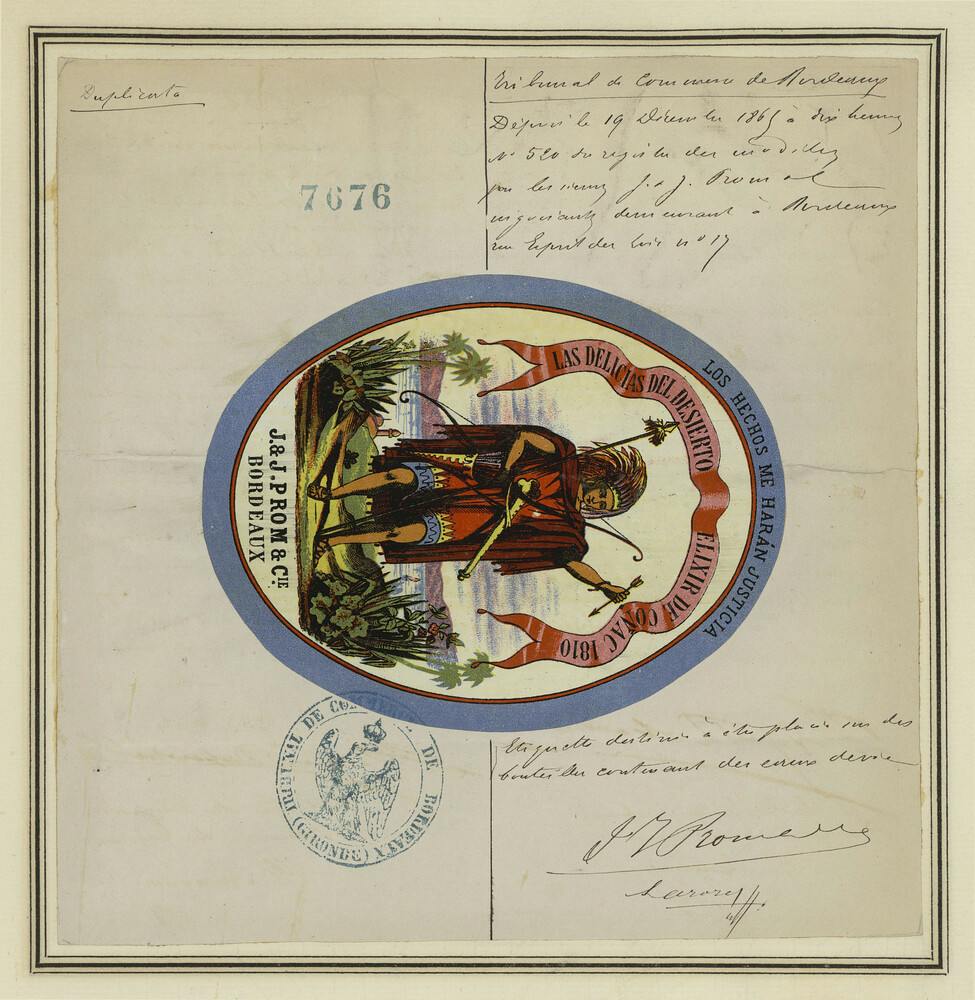 Duplicata
7676
Tribunal de Commerce de Bordeaux
Déposé le 19 Décembre 1865 à dix heures
No 520 du registre des modèles
par les sieurs J. & J. Prom &
négociants demeurant à Bordeaux
rue Esprit des Lois no 17
LOS HECHOS ME HARÁN JUSTICIA
LAS DELICIAS DEL DESIERTO
ELIXIR DE COÑAC 1810
J. & J. PROM & CIE.
BORDEAUX
TRIBUNAL DE COMMERCE DE BORDEAUX
(GIRONDE)
Etiquette destinée à être placée sur des
bouteilles contenant des eaux de vie
J J Prom